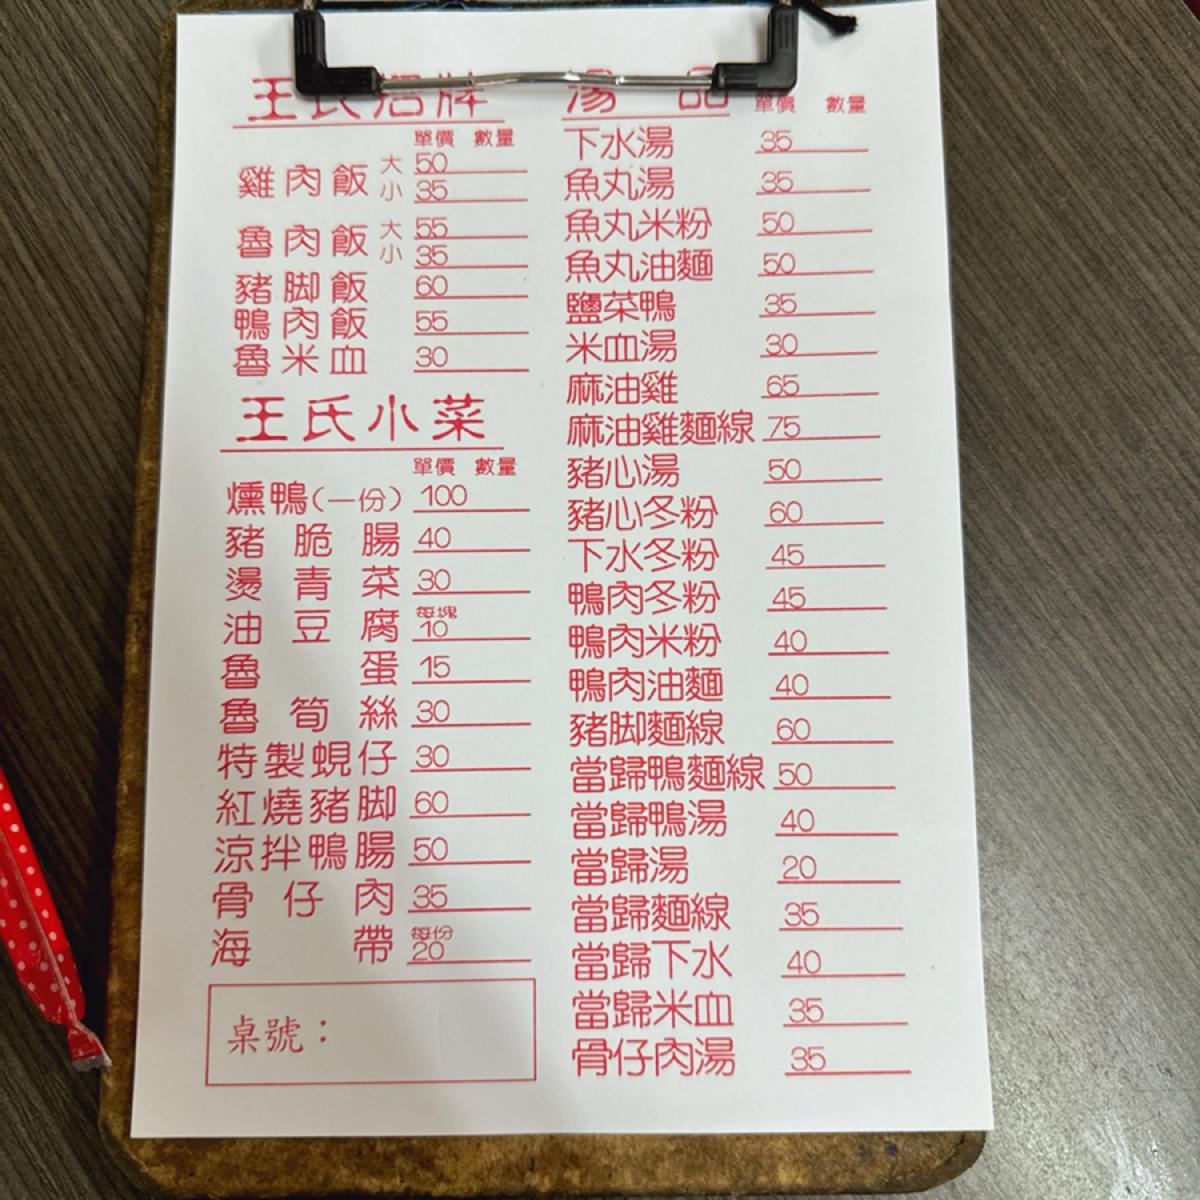 王氏招牌
單價 數量
雞肉飯 大 50
小 35
魯肉飯 大 55
小 35
豬脚飯 60
鴨肉飯 55
魯米血 30
王氏小菜
單價 數量
燻鴨(一份) 100
豬脆腸 40
燙青菜 30
油豆腐 每塊 10
魯蛋 15
魯筍絲 30
特製蜆仔 30
紅燒豬脚 60
涼拌鴨腸 50
骨仔肉 35
海帶 每份 20
桌號：
湯品 單價 數量
下水湯 35
魚丸湯 35
魚丸米粉 50
魚丸油麵 50
鹽菜鴨 35
米血湯 30
麻油雞 65
麻油雞麵線 75
豬心湯 50
豬心冬粉 60
下水冬粉 45
鴨肉冬粉 45
鴨肉米粉 40
鴨肉油麵 40
豬脚麵線 60
當歸鴨麵線 50
當歸鴨湯 40
當歸湯 20
當歸麵線 35
當歸下水 40
當歸米血 35
骨仔肉湯 35